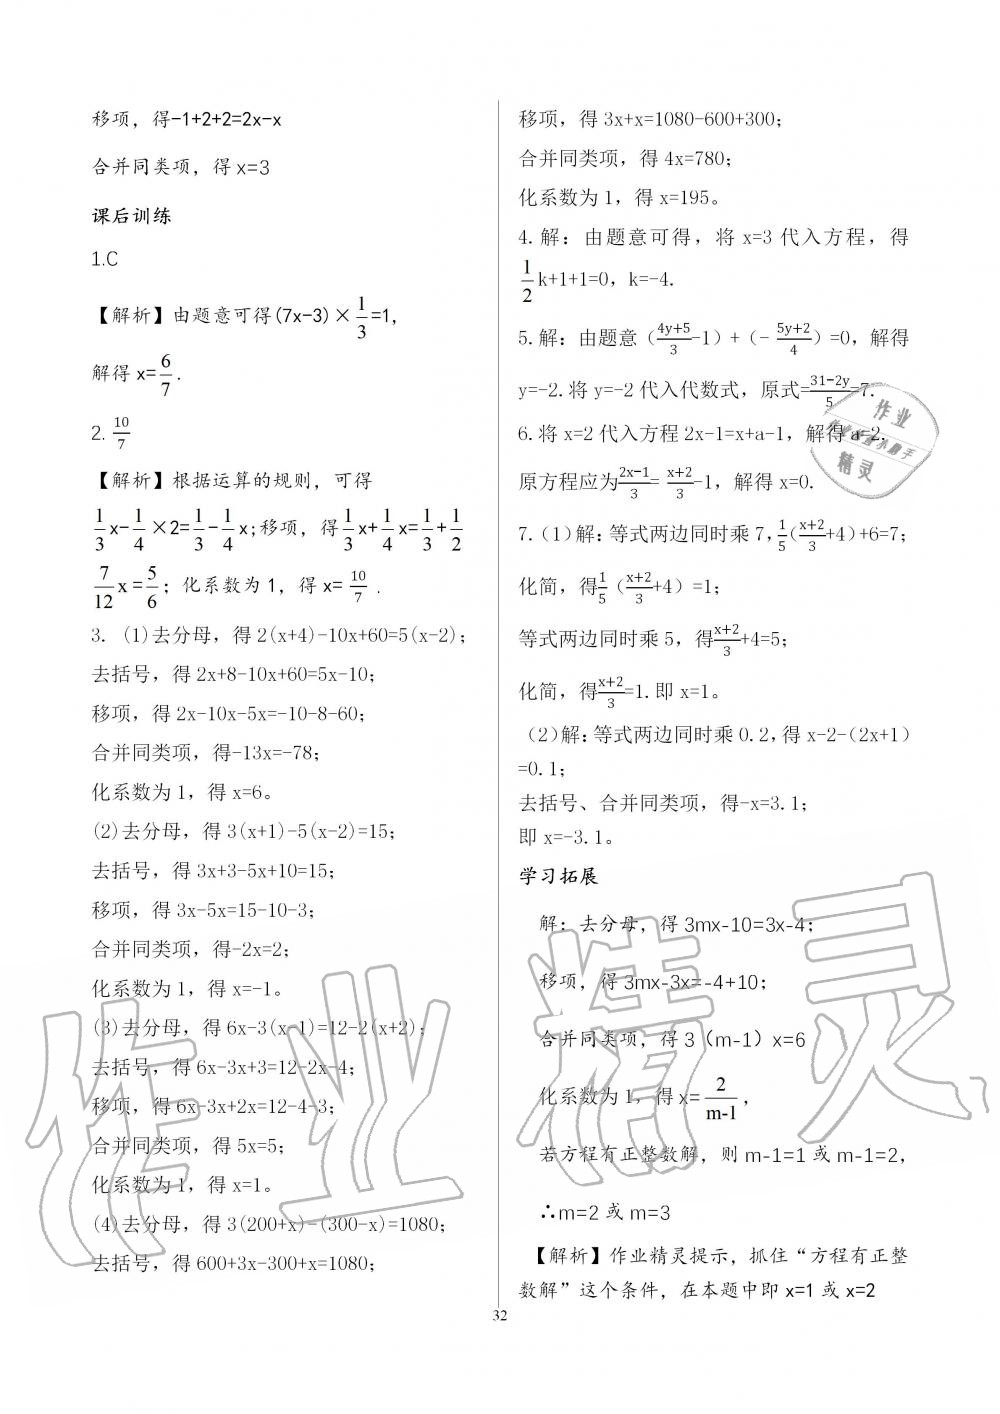 移项，得-1+2+2=2x-x
合并同类项，得 x=3
课后训练
1.C
【解析】由题意可得(7x-3)×1/3=1，
解得 x=6/7.
2. 10/7
【解析】根据运算的规则，可得
1/3x-1/4×2=1/3-1/4x;移项，得1/3x+1/4x=1/3+1/2
7/12x=5/6；化系数为 1，得 x= 10/7.
3. (1)去分母，得 2(x+4)-10x+60=5(x-2);
去括号，得 2x+8-10x+60=5x-10;
移项，得 2x-10x-5x=-10-8-60;
合并同类项，得-13x=-78;
化系数为 1，得 x=6。
(2)去分母，得 3(x+1)-5(x-2)=15;
去括号，得 3x+3-5x+10=15;
移项，得 3x-5x=15-10-3;
合并同类项，得-2x=2;
化系数为 1，得 x=-1。
(3)去分母，得 6x-3(x-1)=12-2(x+2);
去括号，得 6x-3x+3=12-2x-4;
移项，得 6x-3x+2x=12-4-3;
合并同类项，得 5x=5;
化系数为 1，得 x=1。
(4)去分母，得 3(200+x)-(300-x)=1080;
去括号，得 600+3x-300+x=1080;
移项，得 3x+x=1080-600+300;
合并同类项，得 4x=780;
化系数为 1，得 x=195。
4.解：由题意可得，将 x=3 代入方程，得
1/2k+1+1=0，k=-4.
5.解：由题意（4y+5/3-1）+（- 5y+2/4）=0，解得
y=-2.将 y=-2 代入代数式，原式=31-2y/5=7.
6.将 x=2 代入方程 2x-1=x+a-1，解得 a=2.
原方程应为2x-1/3= x+2/3-1，解得 x=0.
7.（1)解：等式两边同时乘 7，1/5(x+2/3+4)+6=7;
化简，得1/5（x+2/3+4）=1;
等式两边同时乘 5，得x+2/3+4=5;
化简，得x+2/3=1.即 x=1。
（2)解：等式两边同时乘 0.2，得 x-2-(2x+1)
=0.1;
去括号、合并同类项，得-x=3.1;
即 x=-3.1。
学习拓展
解：去分母，得 3mx-10=3x-4;
移项，得 3mx-3x=-4+10;
合并同类项，得 3（m-1）x=6
化系数为 1，得 x=2/m-1，
若方程有正整数解，则 m-1=1 或 m-1=2，
∴m=2 或 m=3
【解析】作业精灵提示，抓住“方程有正整
数解”这个条件，在本题中即 x=1 或 x=2
32
作业
精灵
作业精灵